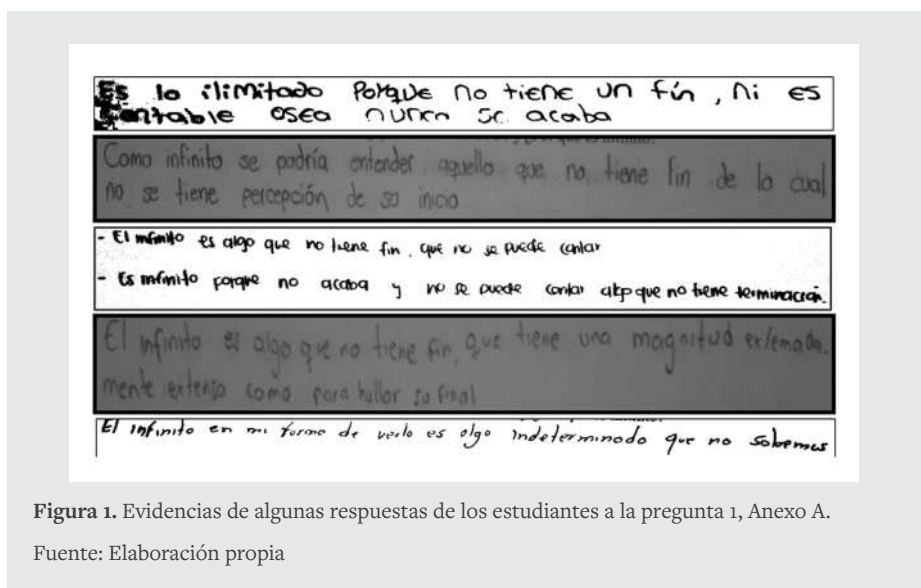 Es lo ilimitado Porque no tiene un fin, ni es
contable osea nunca se acaba
Como infinito se podría entender aquello que no tiene fin de lo cual
no se tiene percepción de su inicio
- El infinito es algo que no tiene fin, que no se puede contar
- Es infinito porque no acaba y no se puede contar algo que no tiene terminación.
El infinito es algo que no tiene fin, que tiene una magnitud extremada.
mente extensa como para hallar su final
El infinito en mi forma de verlo es algo indeterminado que no sabemos
Figura 1. Evidencias de algunas respuestas de los estudiantes a la pregunta 1, Anexo A.
Fuente: Elaboración propia